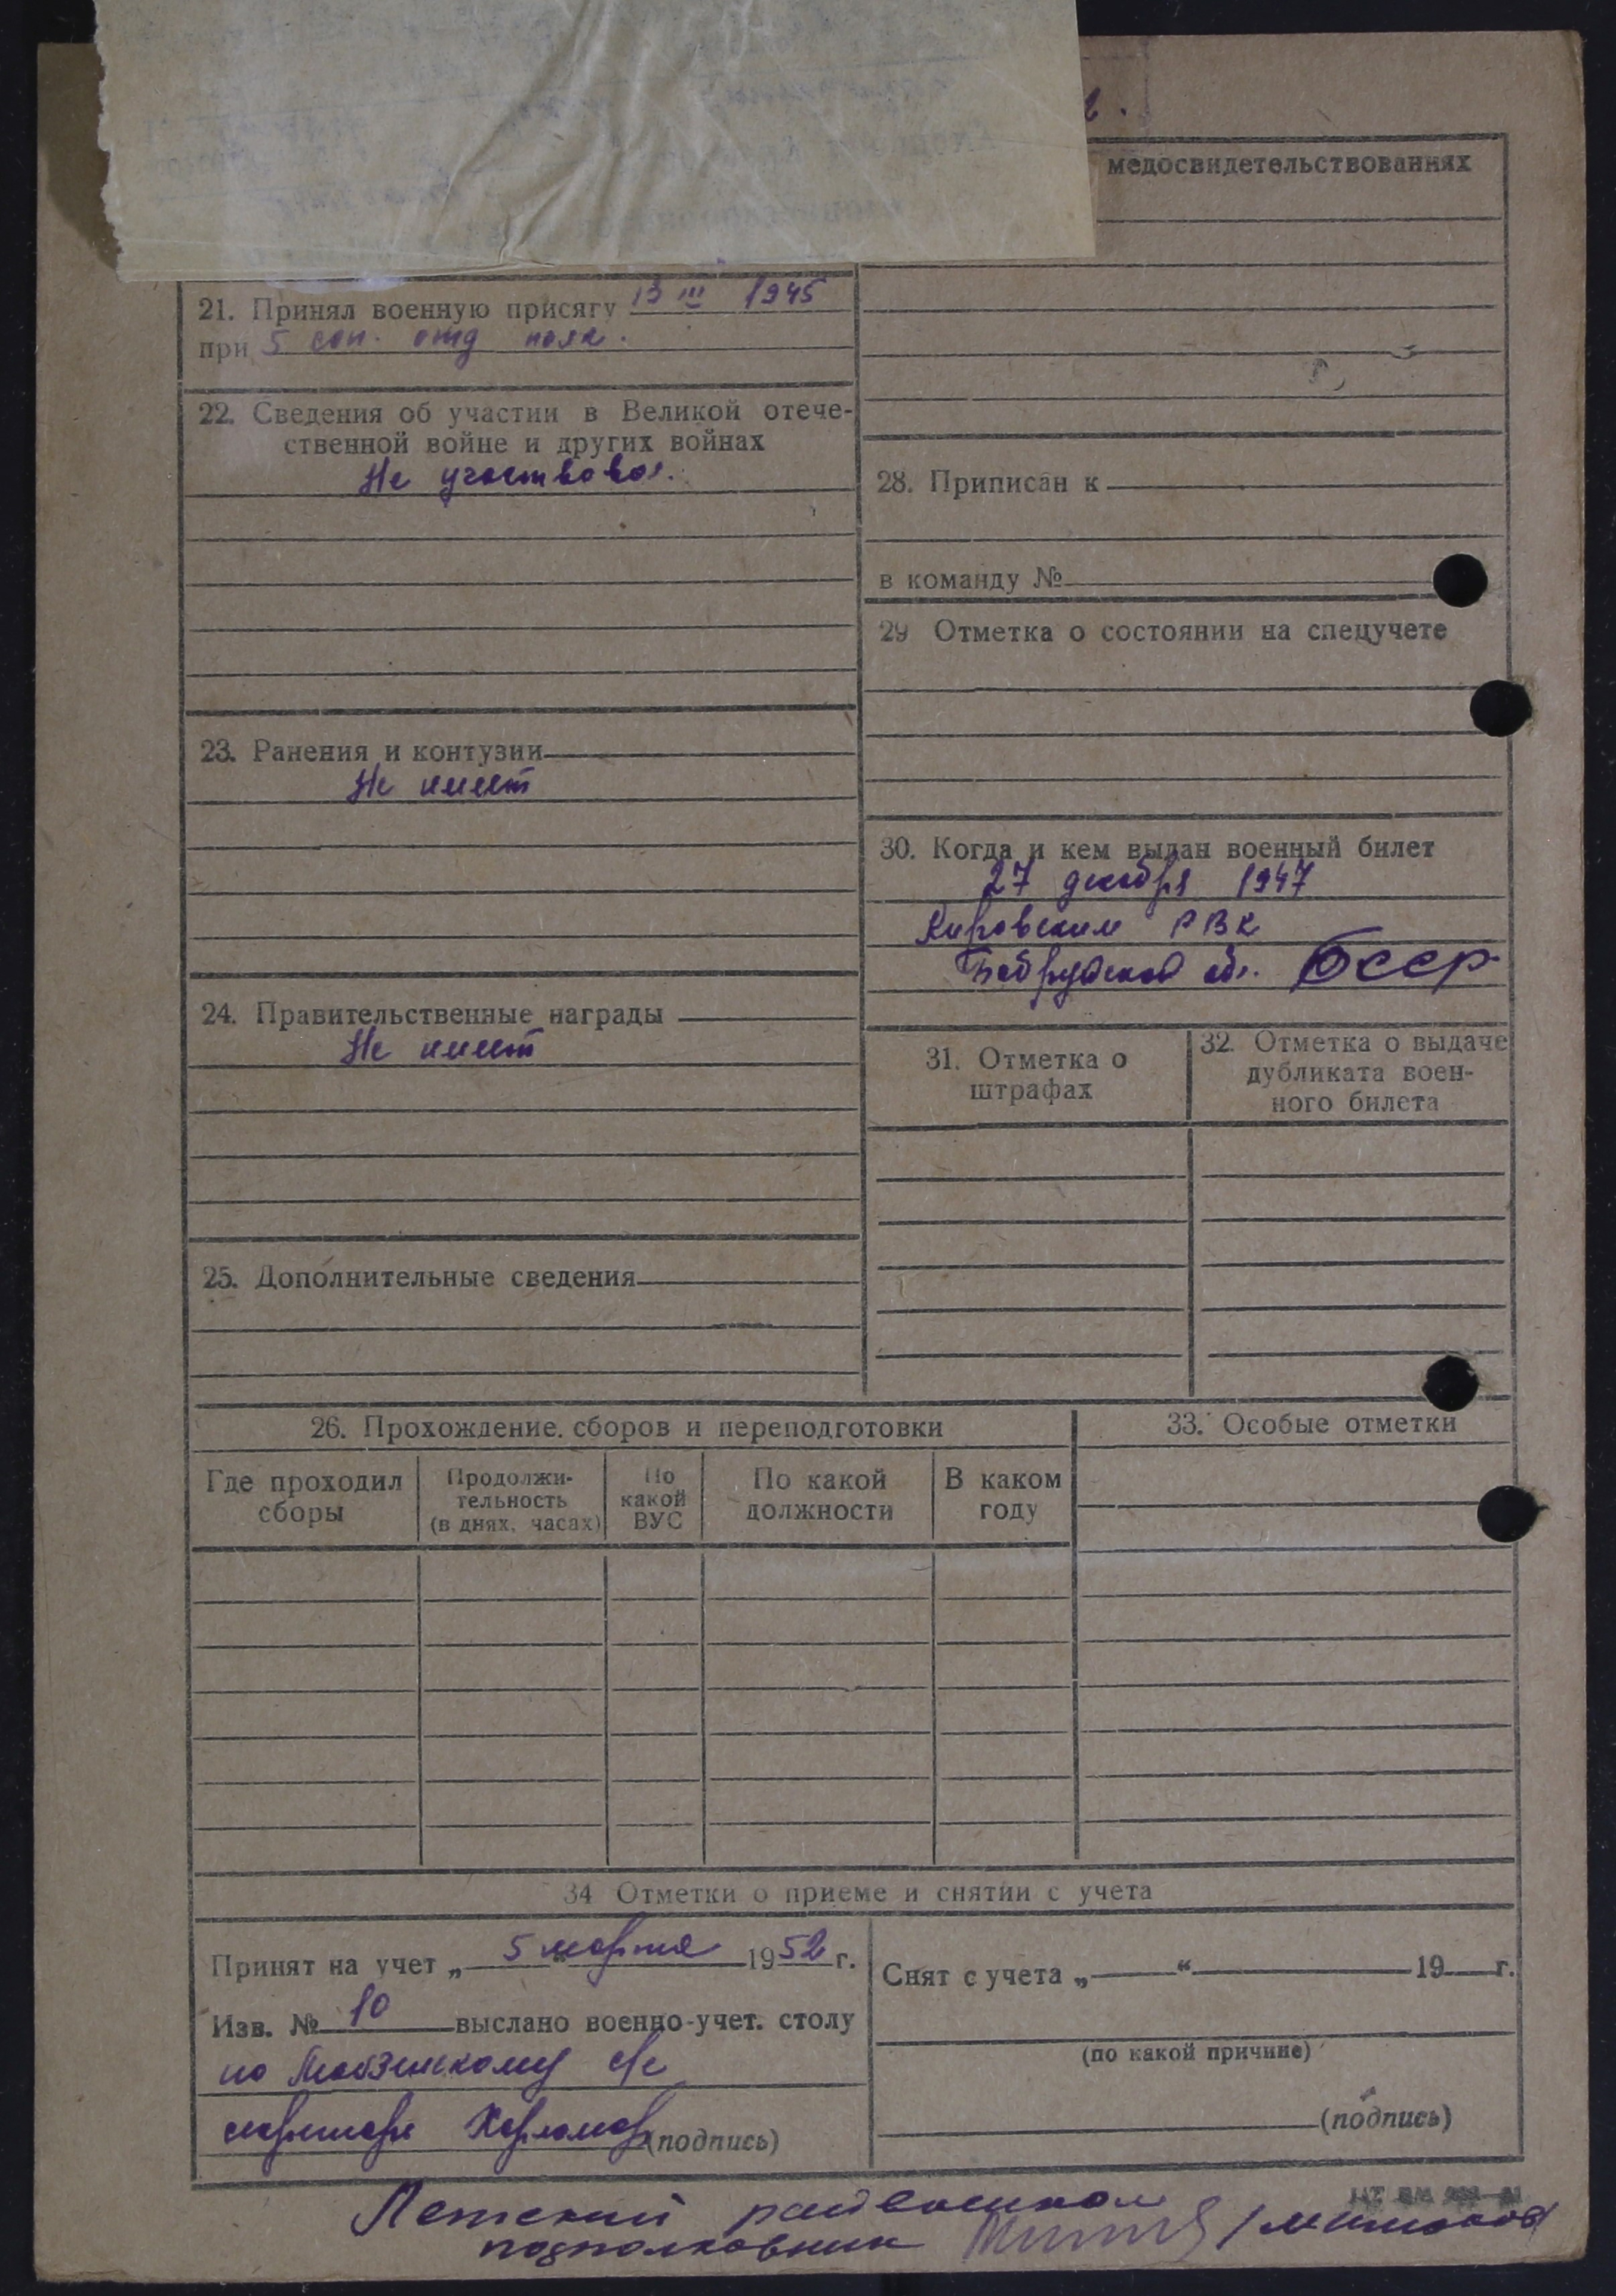 медосвидетельствованиях
21. Принял военную присягу 13 III 1945
при 5 сап. отд полк.
22. Сведения об участии в Великой отече-
ственной войне и других войнах
Не участвовал.
23. Ранения и контузии
Не имеет
24. Правительственные награды
Не имеет
25. Дополнительные сведения
28. Приписан к
в команду №
29 Отметка о состоянии на спецучете
30. Когда и кем выдан военный билет
27 декабря 1947
Кировским РВК
Бобруйской обл. БССР
31. Отметка о
штрафах
32. Отметка о выдаче
дубликата воен-
ного билета
26. Прохождение сборов и переподготовки
Где проходил
сборы
Продолжи-
тельность
(в днях, часах)
По
какой
ВУС
По какой
должности
В каком
году
33. Особые отметки
34 Отметки о приеме и снятии с учета
Принят на учет „ 5 “ марта 1952 г.
Изв. № 10 выслано военно-учет. столу
по с/с
(подпись)
Снят с учета „ “ 19 г.
(по какой причине)
(подпись)
Летский райвоенком
подполковник